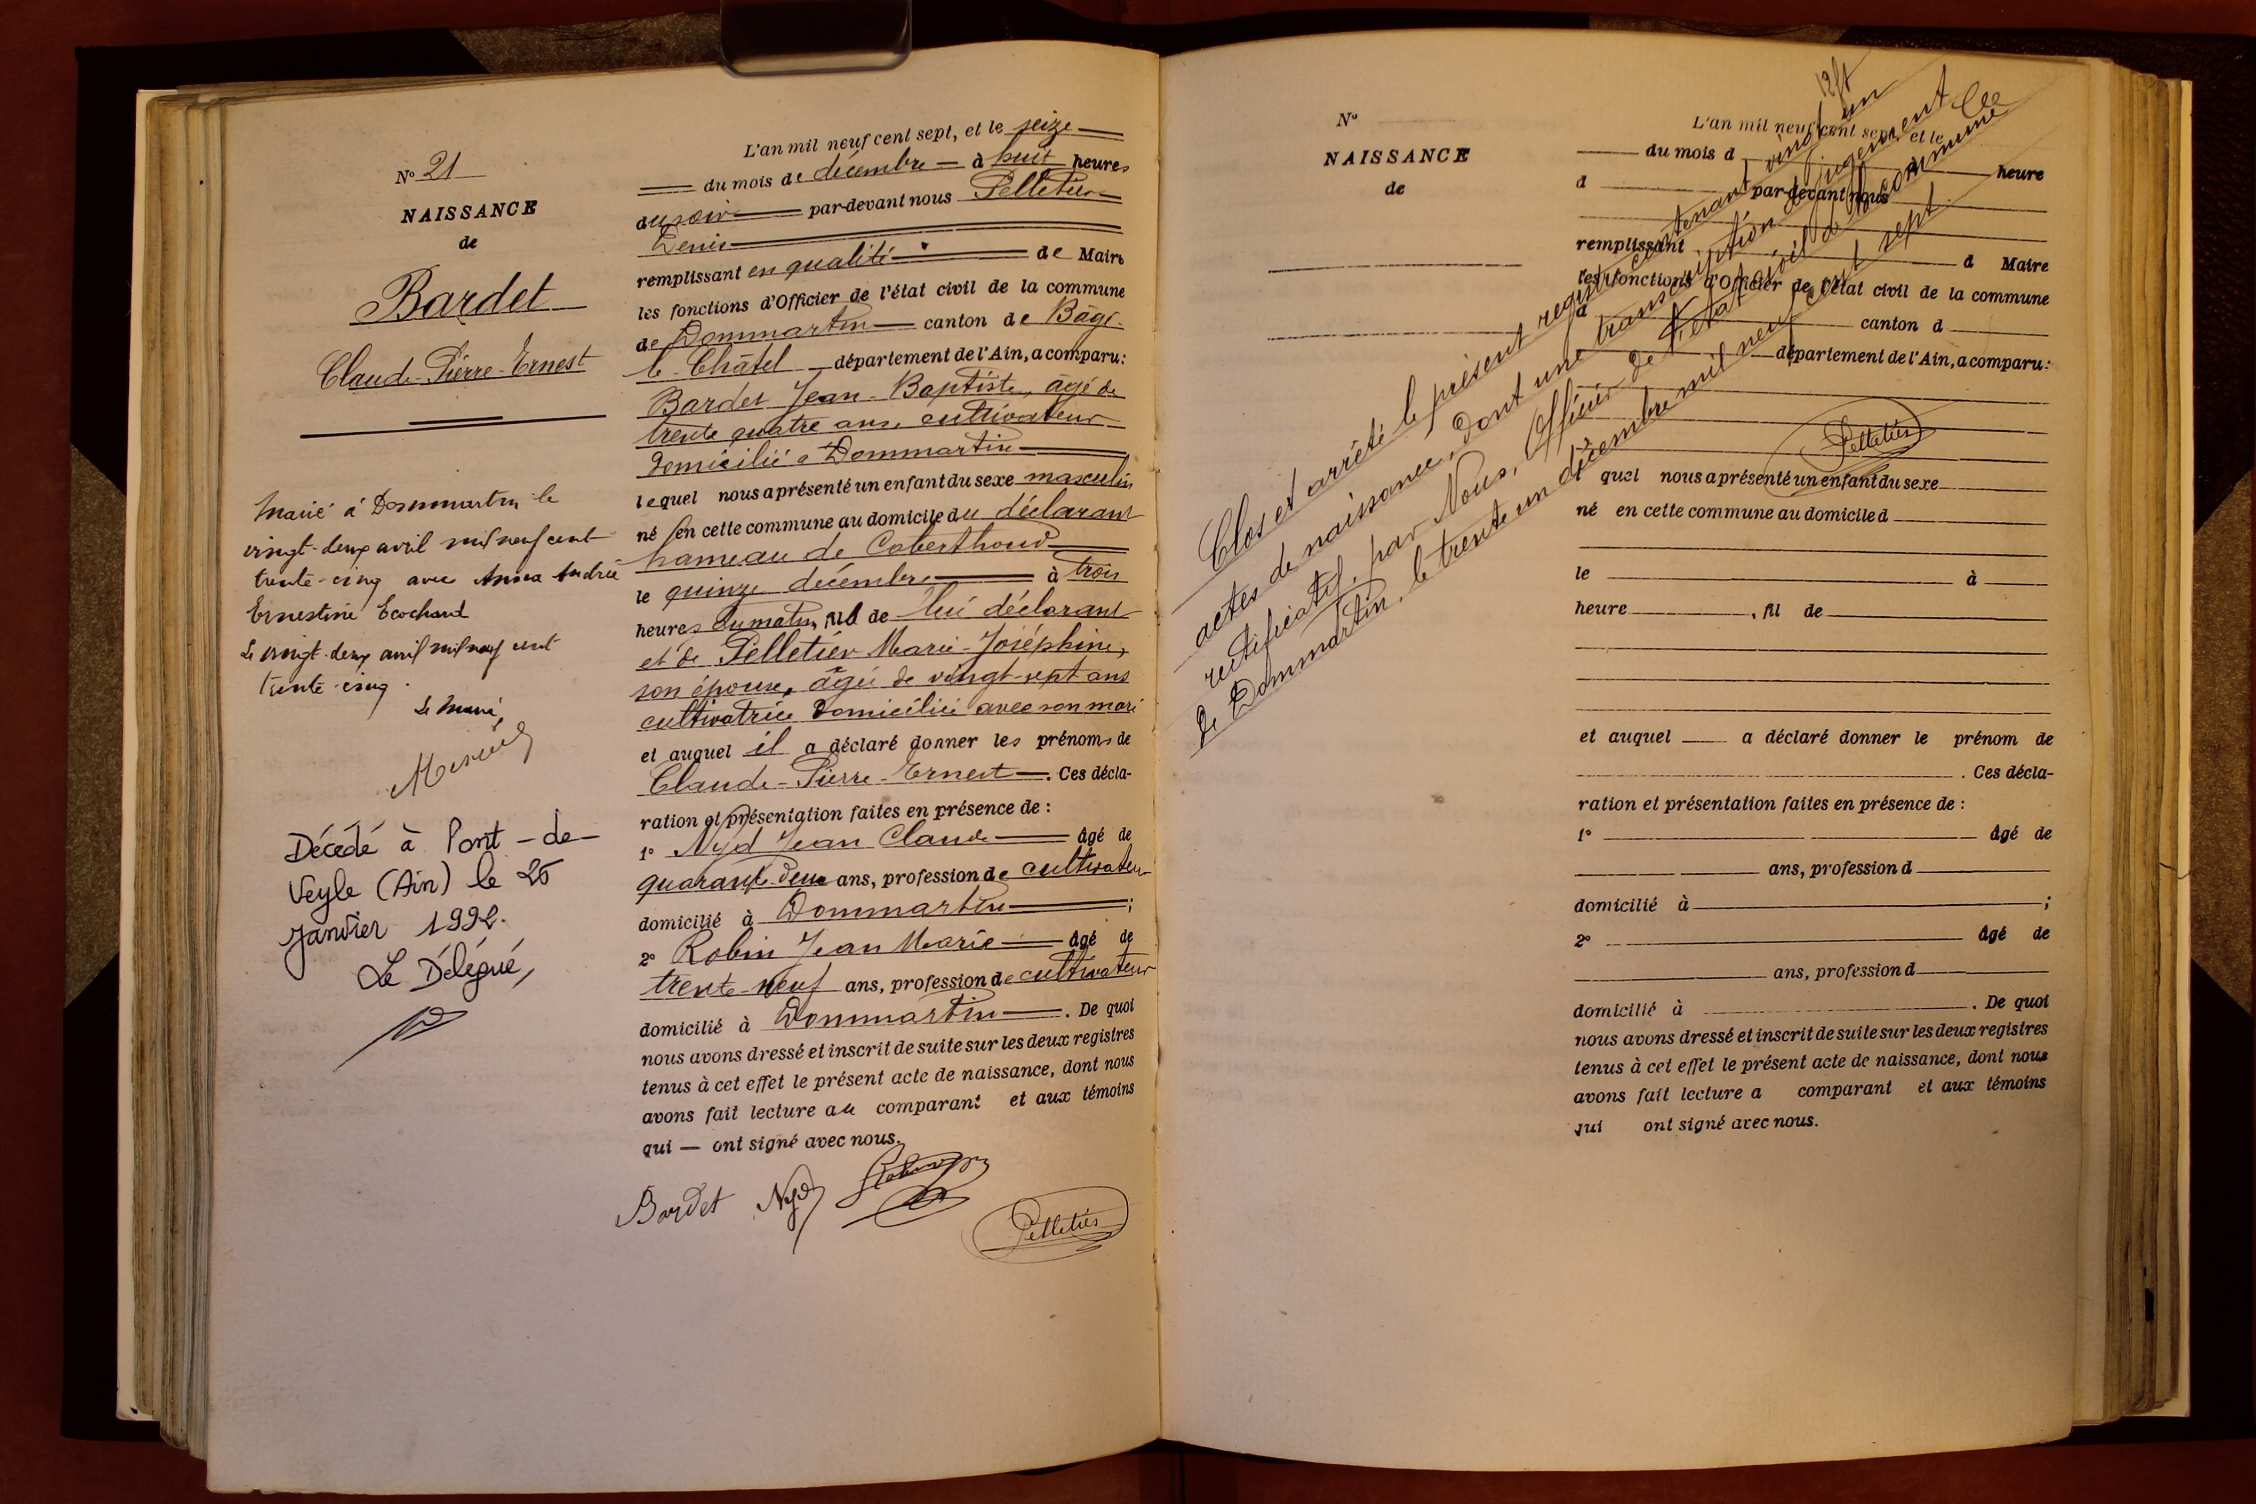 N° 21
NAISSANCE
de
Bardet
Claude-Pierre-Ernest
Marié à Dommartin le
vingt-deux avril mil neuf cent
trente-cinq avec Anna Andrée
Ernestine Ecochard
Le vingt-deux avril mil neuf cent
trente-cinq.
Le Maire,
Décédé à Pont-de-
Veyle (Ain) le 25
janvier 1992.
Le Délégué,
L'an mil neuf cent sept, et le seize
du mois de décembre à huit heures
du soir par-devant nous Pelletier
Denis
remplissant en qualité de Maire
les fonctions d'Officier de l'état civil de la commune
de Dommartin canton de Bâgé-
le-Châtel département de l'Ain, a comparu:
Bardet Jean-Baptiste, âgé de
trente quatre ans, cultivateur
domicilié à Dommartin
lequel nous a présenté un enfant du sexe masculin
né en cette commune au domicile du déclarant
hameau de Coberthoud
le quinze décembre à trois
heures du matin, fils de lui déclarant
et de Pelletier Marie-Joséphine,
son épouse, âgée de vingt-sept ans
cultivatrice domiciliée avec son mari
et auquel il a déclaré donner les prénoms de
Claude-Pierre-Ernest. Ces décla-
ration et présentation faites en présence de :
1° Nyd Jean Claude âgé de
quarante-deux ans, profession de cultivateur
domicilié à Dommartin ;
2° Robin Jean Marie âgé de
trente-neuf ans, profession de cultivateur
domicilié à Dommartin. De quoi
nous avons dressé et inscrit de suite sur les deux registres
tenus à cet effet le présent acte de naissance, dont nous
avons fait lecture au comparant et aux témoins
qui — ont signé avec nous.
Bardet Nyd Robin
Pelletier
N°
NAISSANCE
de
L'an mil neuf cent sept, et le
du mois d à heure
d par-devant nous
remplissant d Maire
les fonctions d'Officier de l'état civil de la commune
d canton d
département de l'Ain, a comparu:
Clos et arrêté le présent registre contenant vingt un
actes de naissance, dont une transcription de jugement
rectificatif, par Nous, Officier de l'état civil de la commune
de Dommartin, le trente un décembre mil neuf cent sept.
Pelletier
quel nous a présenté un enfant du sexe
né en cette commune au domicile d
le à
heure , fil de
et auquel a déclaré donner le prénom de
. Ces décla-
ration et présentation faites en présence de :
1° âgé de
ans, profession d
domicilié à ;
2° âgé de
ans, profession d
domicilié à . De quoi
nous avons dressé et inscrit de suite sur les deux registres
tenus à cet effet le présent acte de naissance, dont nous
avons fait lecture a comparant et aux témoins
qui ont signé avec nous.